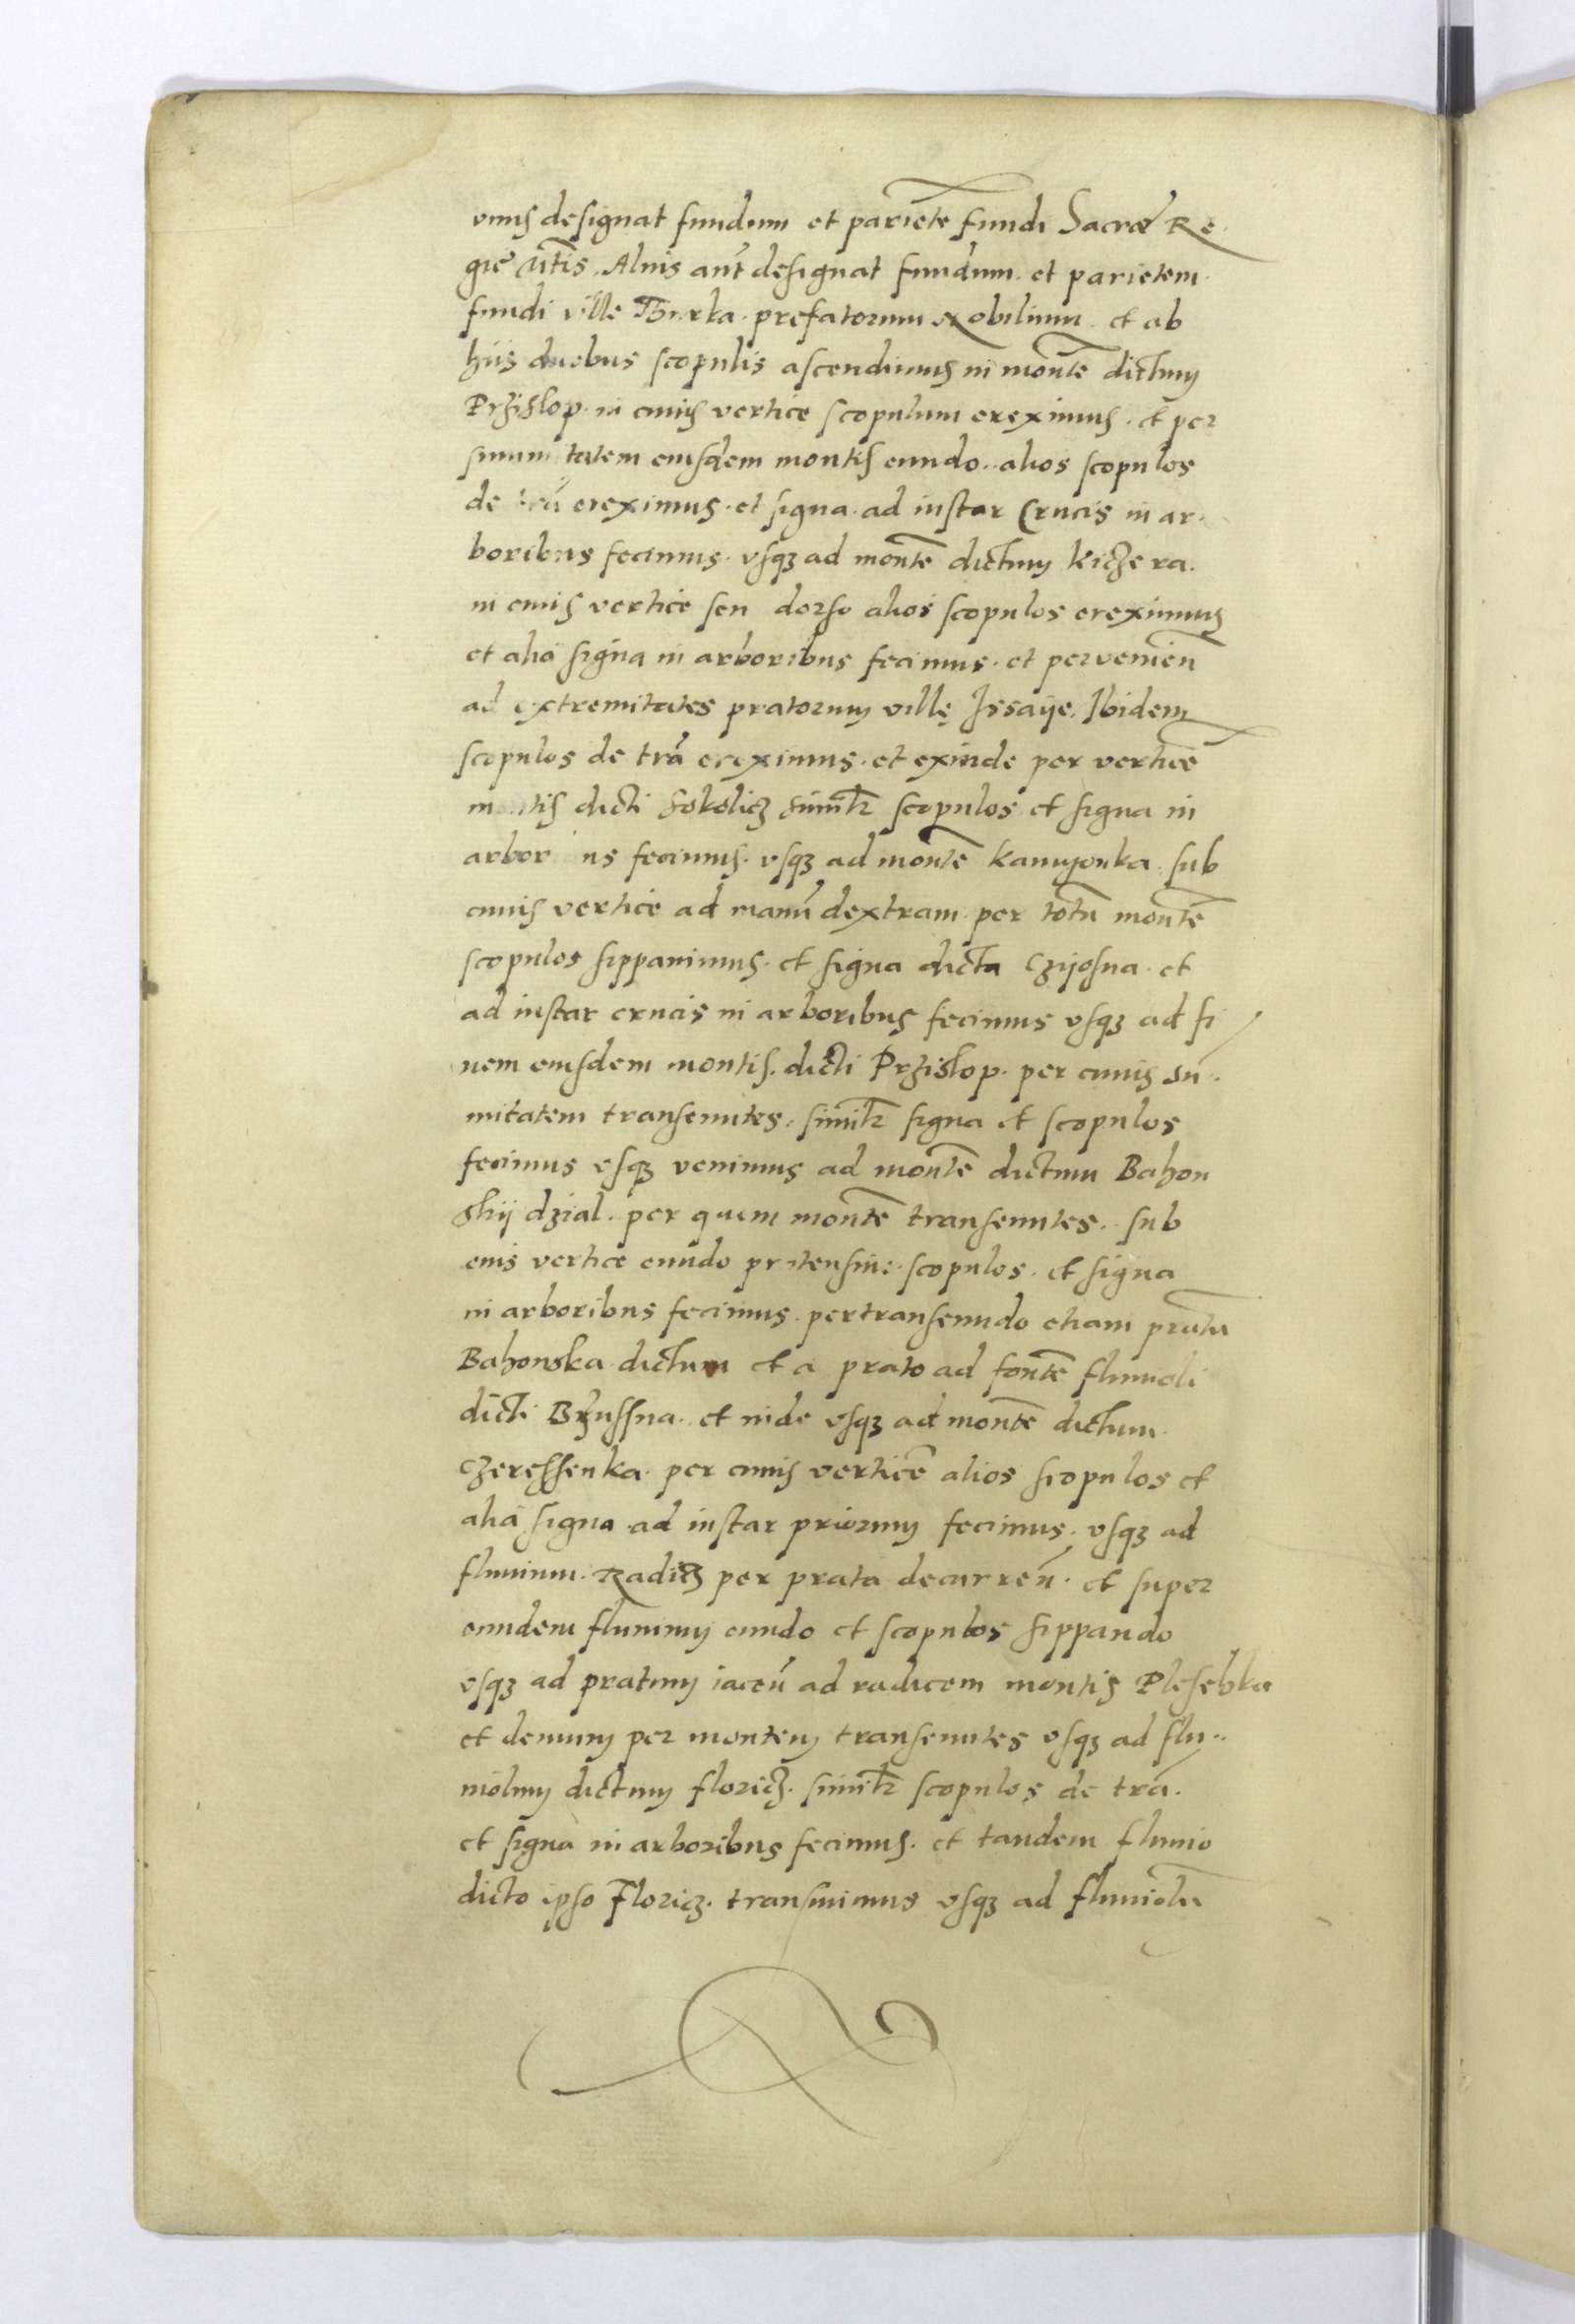 vnus designat fundum et pariete fundi Sacræ Re
gie Mtis. Alius aut designat fundum et parietem
fundi ville Turka prefatorum Nobilium et ab
hiis duobus scopulis ascendimus in monte dictum
Przislop in cuius vertice scopulum ereximus et per
summitatem eiusdem montis eundo alios scopulos
de tra ereximus et signa ad instar Crucis in ar
boribus fecimus vsqz ad monte dictum Kiczera
in cuius vertice seu dorso alios scopulos ereximus
et alia signa in arboribus fecimus et pervenien
ad extremitates pratorum villę Issaije. Ibidem
scopulos de tra ereximus et exinde per vertice
montis dicti Sokolicz similr scopulos et signa in
arboribus fecimus vsqz ad monte Kamyonka sub
cuius vertice ad manu dextram per totu monte
scopulos sippauimus et signa dicta Czijosna et
ad instar crucis in arboribus fecimus vsqz ad fi
nem eiusdem montis dicti Przislop per cuius su
mitatem transeuntes similr signa et scopulos
fecimus vsqz venimus ad monte dictum Bahon
skij dzial per quem monte transeuntes sub
eius vertice eundo pretensiue scopulos et signa
in arboribus fecimus pertranseundo etiam pratu
Bahonska dictum et a prato ad fonte fluuioli
dicti Brzussna et inde vsqz ad monte dictum
Czeressenka per cuius vertice alios scopulos et
alia signa ad instar priorum fecimus vsqz ad
fluuium Radicz per prata decurren et super
eundem fluuium eundo et scopulos sippando
vsqz ad pratum iacen ad radicem montis
et demum per montem transeuntes vsqz ad flu
uiolum dictum floricz similr scopulos de tra
et signa in arboribus fecimus et tandem fluuio
dicto ipso Floricz transiuimus vsqz ad fluuiolu